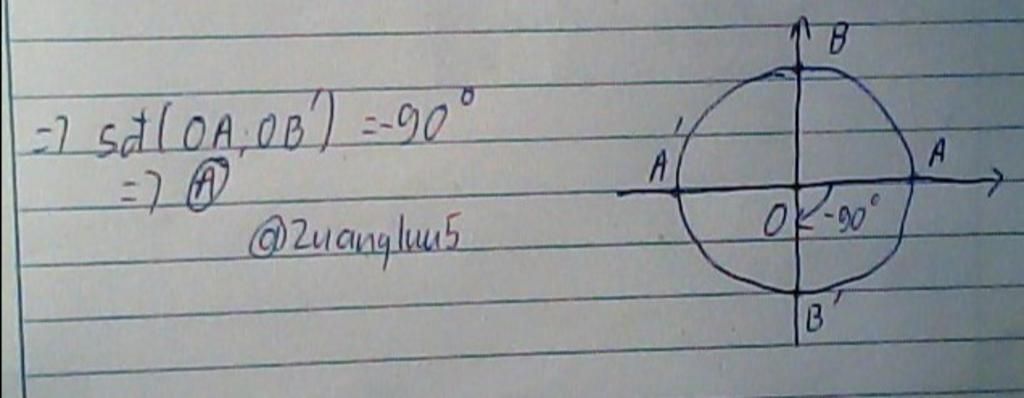 => sđ(OA,OB') = -90°
=> Ⓐ
@2uangluu5
B
A'
A
O
-90°
B'